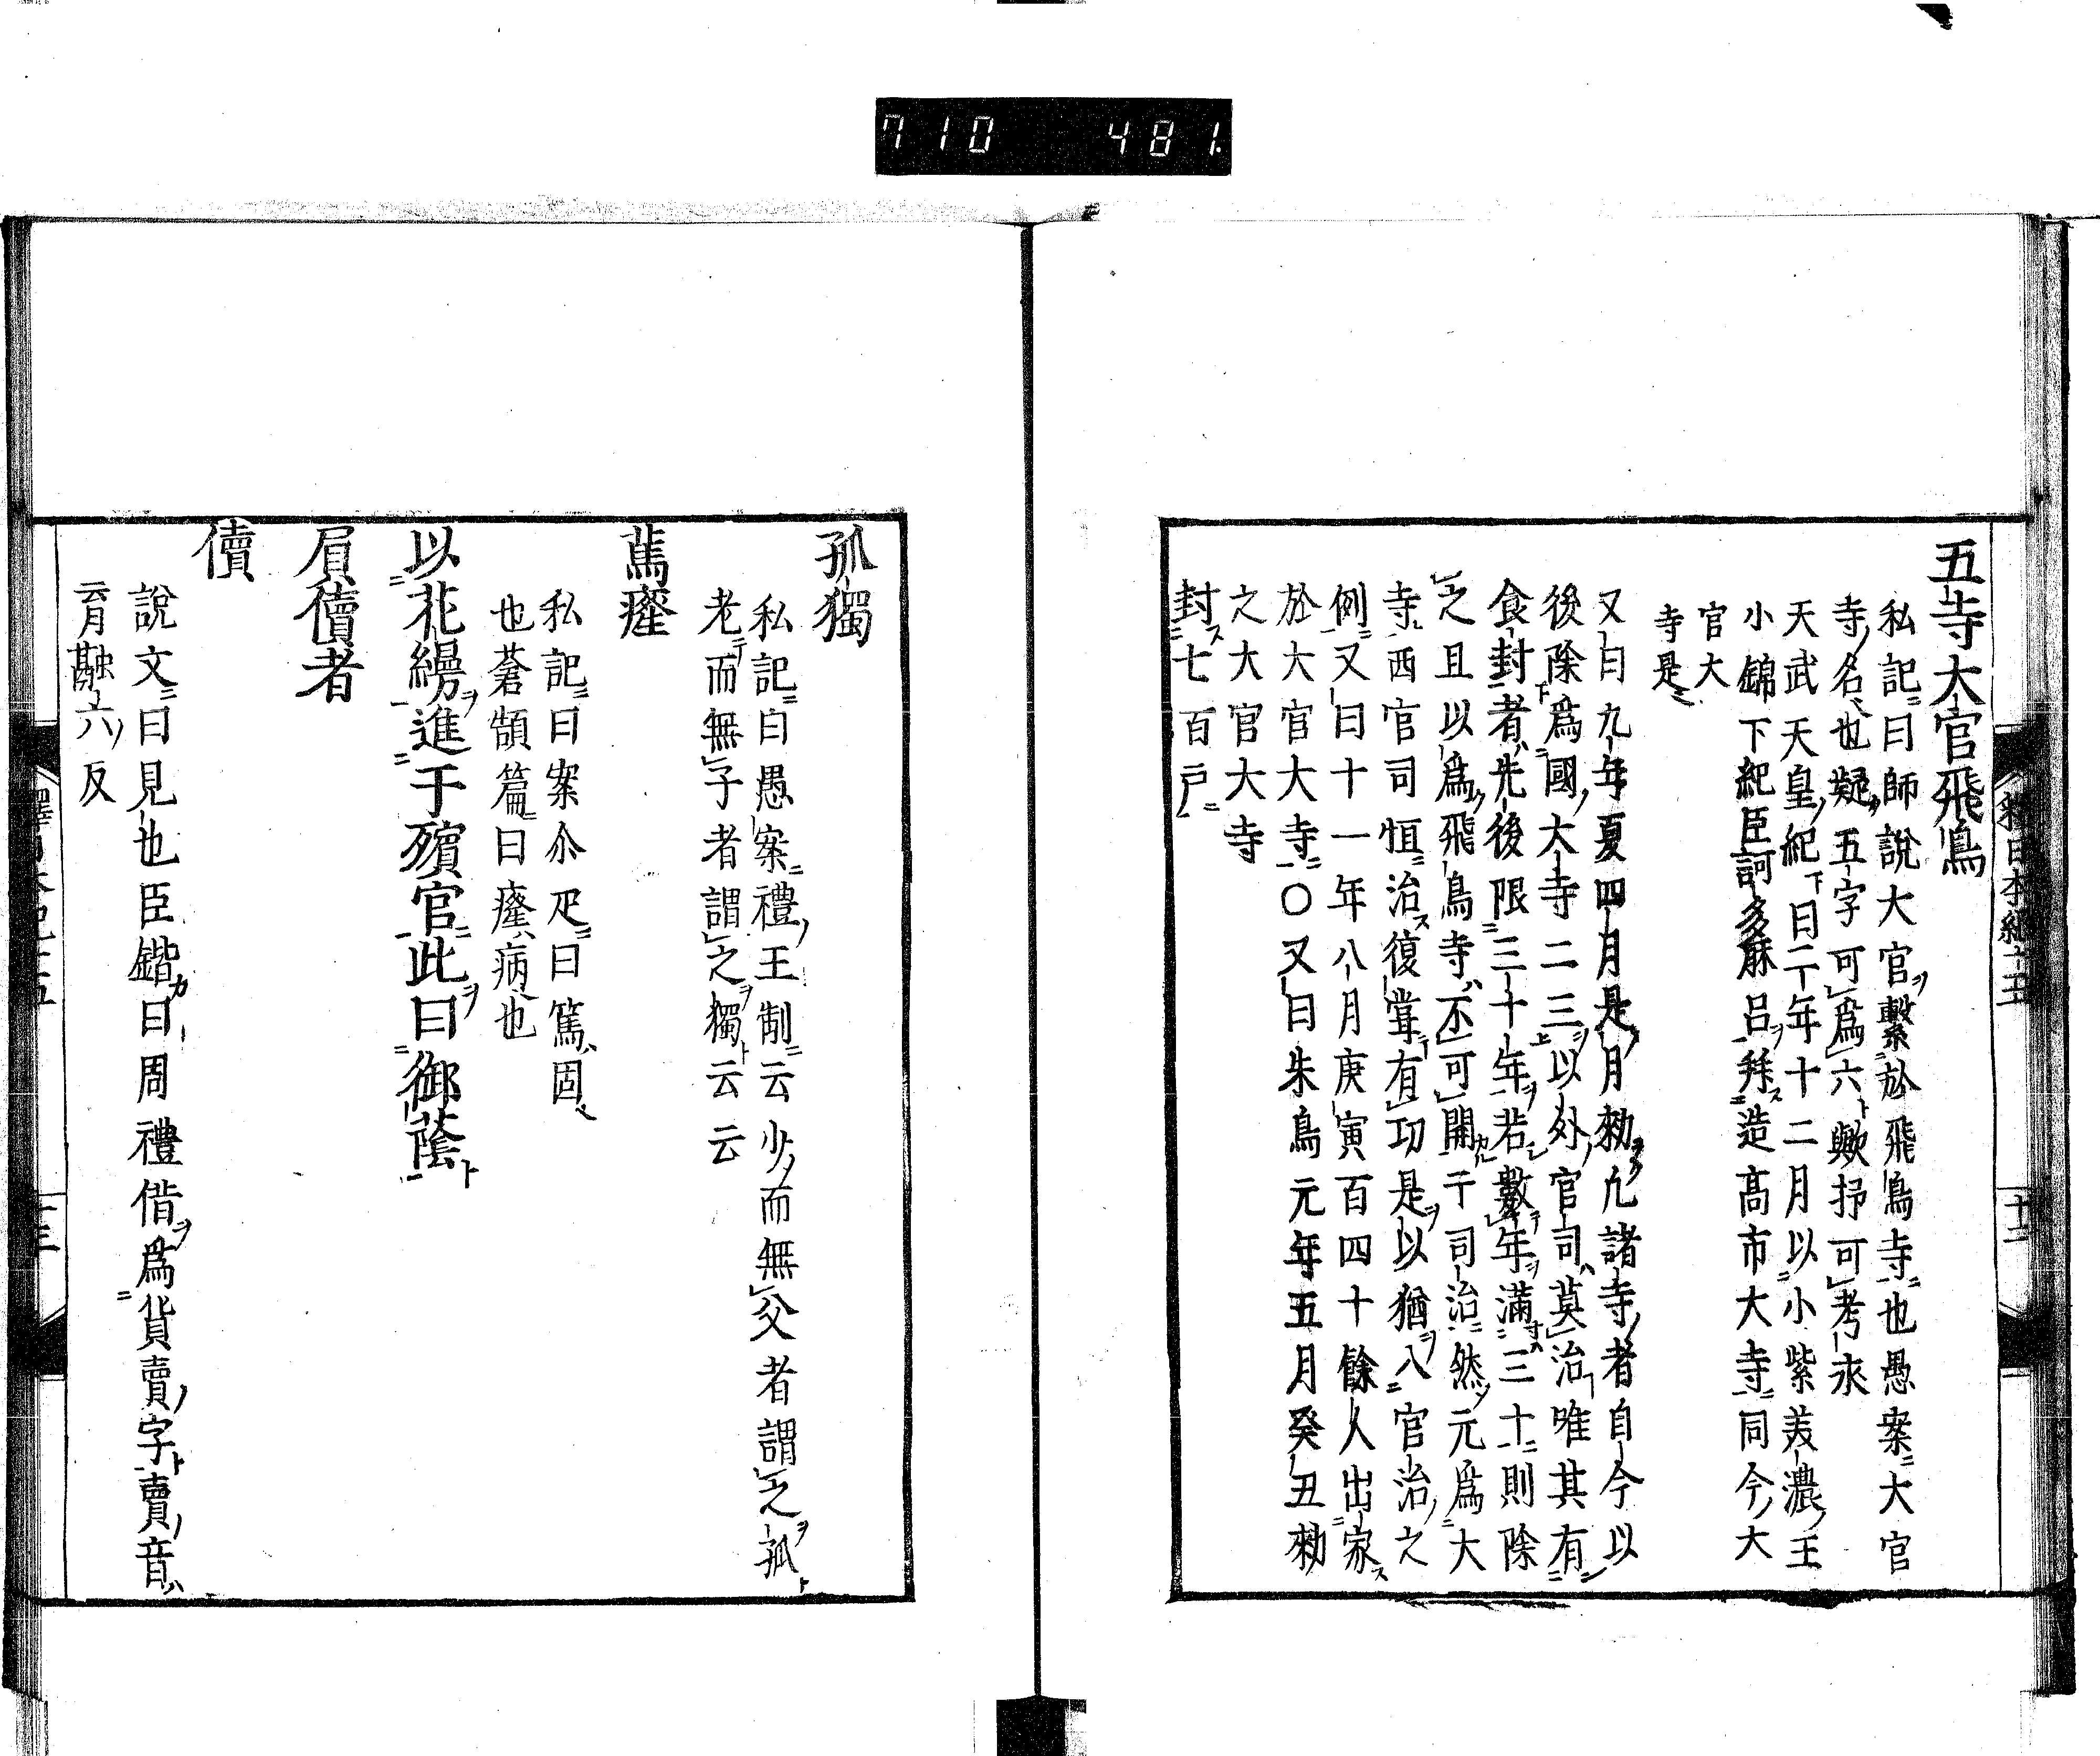 710 481.
五寺大官飛鳥
私記曰師說大官繫於飛鳥寺也愚案大官
寺名也疑五字可爲六歟抒可考求
天武天皇紀下曰二年十二月以小紫美濃王
小錦下紀臣訶多麻呂拜造高市大寺同今大
官大
寺是
又曰九年夏四月是月勅凢諸寺者自今以
後除爲國大寺二三以外官司莫治唯其有
食封者先後限三十年若數年滿三十則除
之且以爲飛鳥寺不可開于司治然元爲大
寺西官司恒治復甞有功是以猶入官治之
例又曰十一年八月庚寅百四十餘人出家
於大官大寺〇又曰朱鳥元年五月癸丑勅
之大官大寺
封七百戸
孤獨
私記曰愚案禮王制云少而無父者謂之孤
老而無子者謂之獨云云
篤癃
私記曰案尒疋曰篤固
也蒼頡篇曰癃病也
以花縵進于殯宮此曰御蔭
屓儥者
儥
說文曰見也臣鍇曰周禮借爲貨賣字賣音
育融六反